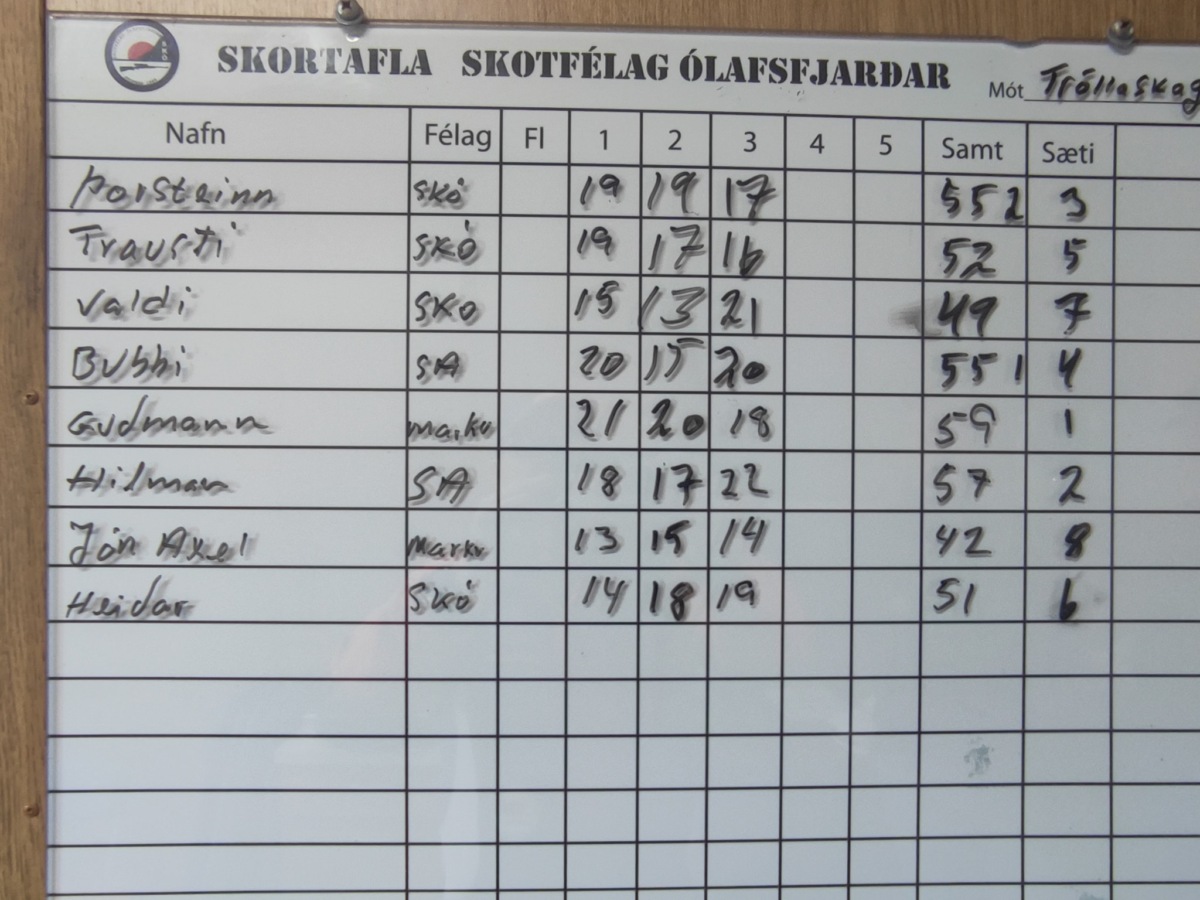 SKORTAFLA SKOTFÉLAG ÓLAFSFJARÐAR Mót Tröllaskag
Nafn Félag Fl 1 2 3 4 5 Samt Sæti
Þorsteinn Skó 19 19 17 55 2 3
Trausti SKÓ 19 17 16 52 5
Valdi SKO 15 13 21 49 7
Bubbi SA 20 15 20 55 1 4
Gudmann Markv 21 20 18 59 1
Hilmar SA 18 17 22 57 2
Jón Axel Markv 13 15 14 42 8
Heidar Skó 14 18 19 51 6